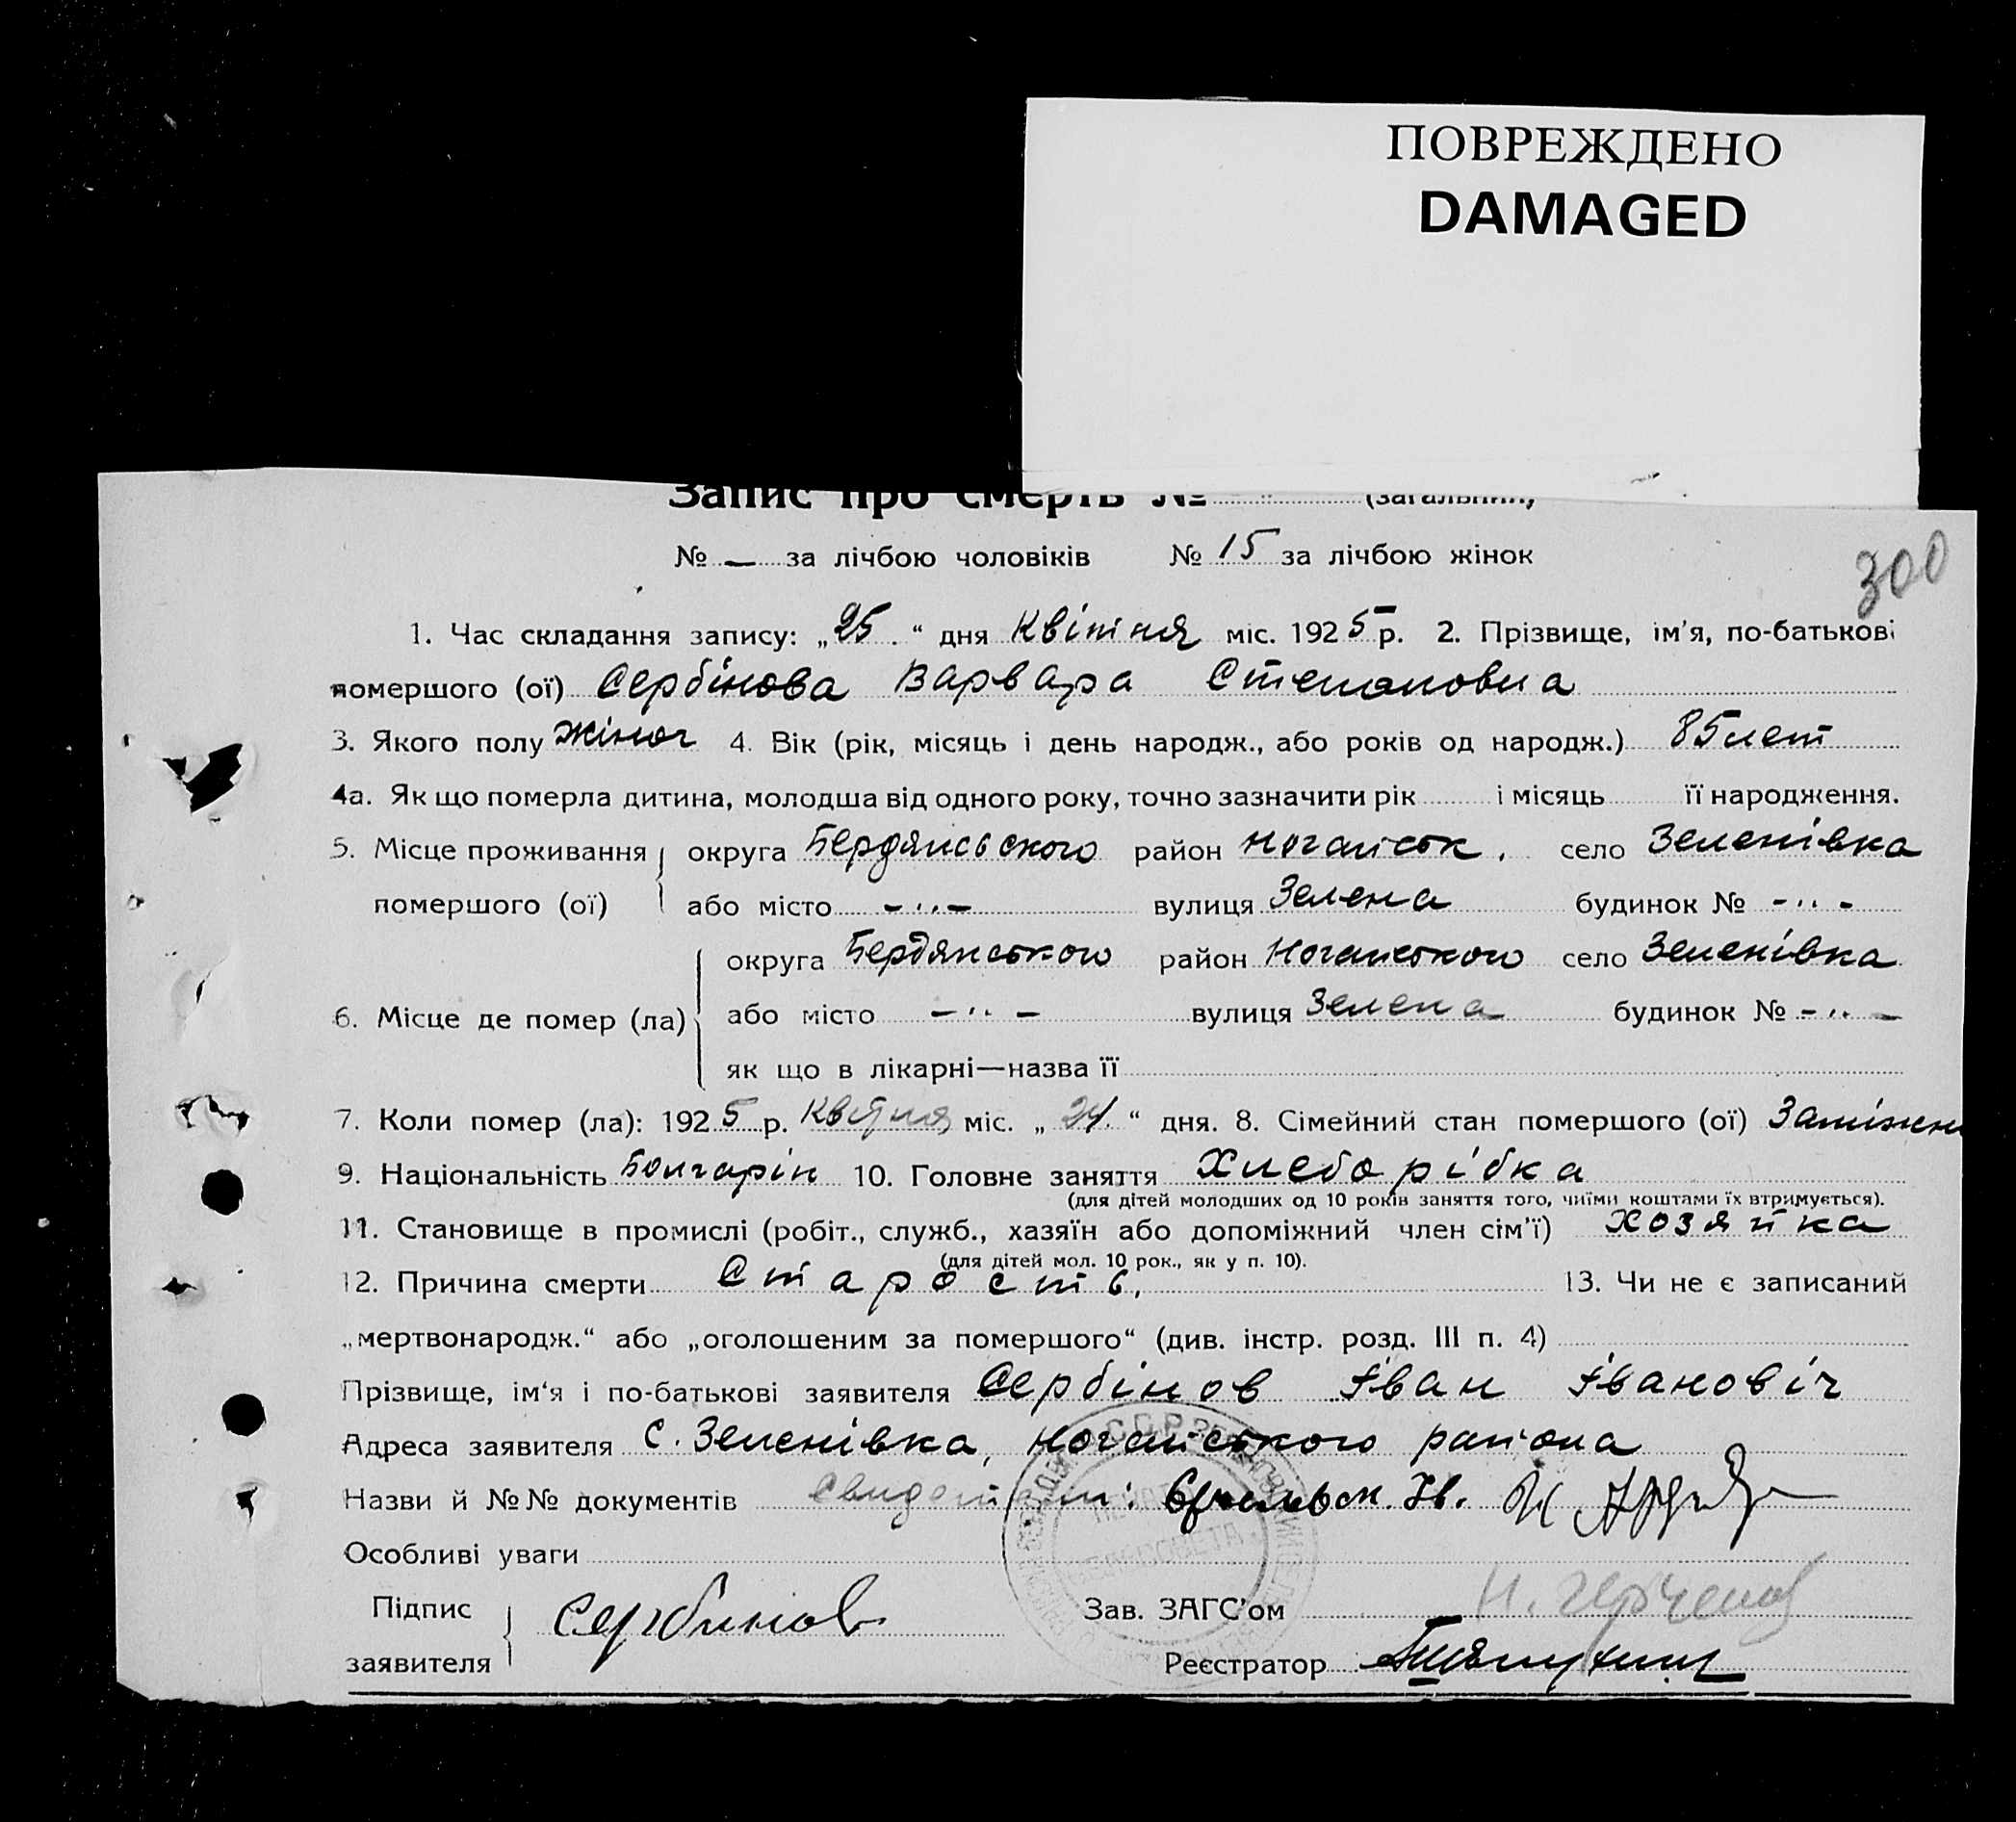 ПОВРЕЖДЕНО
DAMAGED
Запис про смерть № (загальний)
№ — за лічбою чоловіків № 15 за лічбою жінок
300
1. Час складання запису: „25.“ дня Квітня міс. 1925 р. 2. Прізвище, ім'я, по-батькові
помершого (ої) Сербінова Варвара Степановна
3. Якого полу Жіноч 4. Вік (рік, місяць і день народж., або років од народж.) 85 лет
4а. Як що померла дитина, молодша від одного року, точно зазначити рік і місяць її народження.
5. Місце проживання округа Бердянського район Ногайськ. село Зеленівка
помершого (ої) або місто -„- вулиця Зелена будинок № -„-
округа Бердянського район Ногайського село Зеленівка
6. Місце де помер (ла) або місто -„- вулиця Зелена будинок № -„-
як що в лікарні—назва її
7. Коли помер (ла): 1925 р. Квітня міс. „24.“ дня. 8. Сімейний стан помершого (ої) Заміжня
9. Національність Болгарін 10. Головне заняття Хлеборібка
(для дітей молодших од 10 років заняття того, чиїми коштами їх втримується).
11. Становище в промислі (робіт., служб., хазяїн або допоміжний член сім'ї) Хозяйка
(для дітей мол. 10 рок., як у п. 10).
12. Причина смерти Старость. 13. Чи не є записаний
„мертвонародж.“ або „оголошеним за помершого“ (див. інстр. розд. III п. 4)
Прізвище, ім'я і по-батькові заявителя Сербінов Іван Івановіч
Адреса заявителя С. Зеленівка, Ногайського района
Назви й №№ документів Ів.
Особливі уваги
Підпис заявителя Сербинов
Зав. ЗАГС'ом
Реєстратор